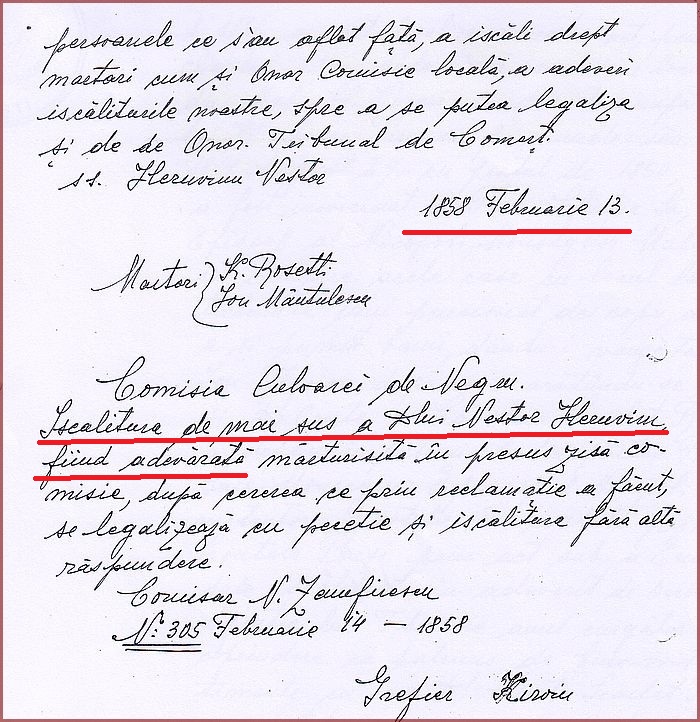 persoanele ce s'au aflat față, a iscăli drept
martori cum și Onor Comisie locală, a adeveri
iscăliturile noastre, spre a se putea legaliza
și de de Onor. Tribunal de Comerț.
ss. Heruvim Nestor
1858 Februarie 13.
Martori K. Rosetti
Ion Măntulescu
Comisia Culoarei de Negru.
Iscalitura de mai sus a Dlui Nestor Heruvim,
fiind adevărată mărturisită în presus zisă co-
misie, după cererea ce prin reclamație a făcut,
se legalizează cu pecetie și iscălitura fără altă
răspundere.
Comisar N. Zamfirescu
No: 305 Februarie 14 — 1858
Grefier